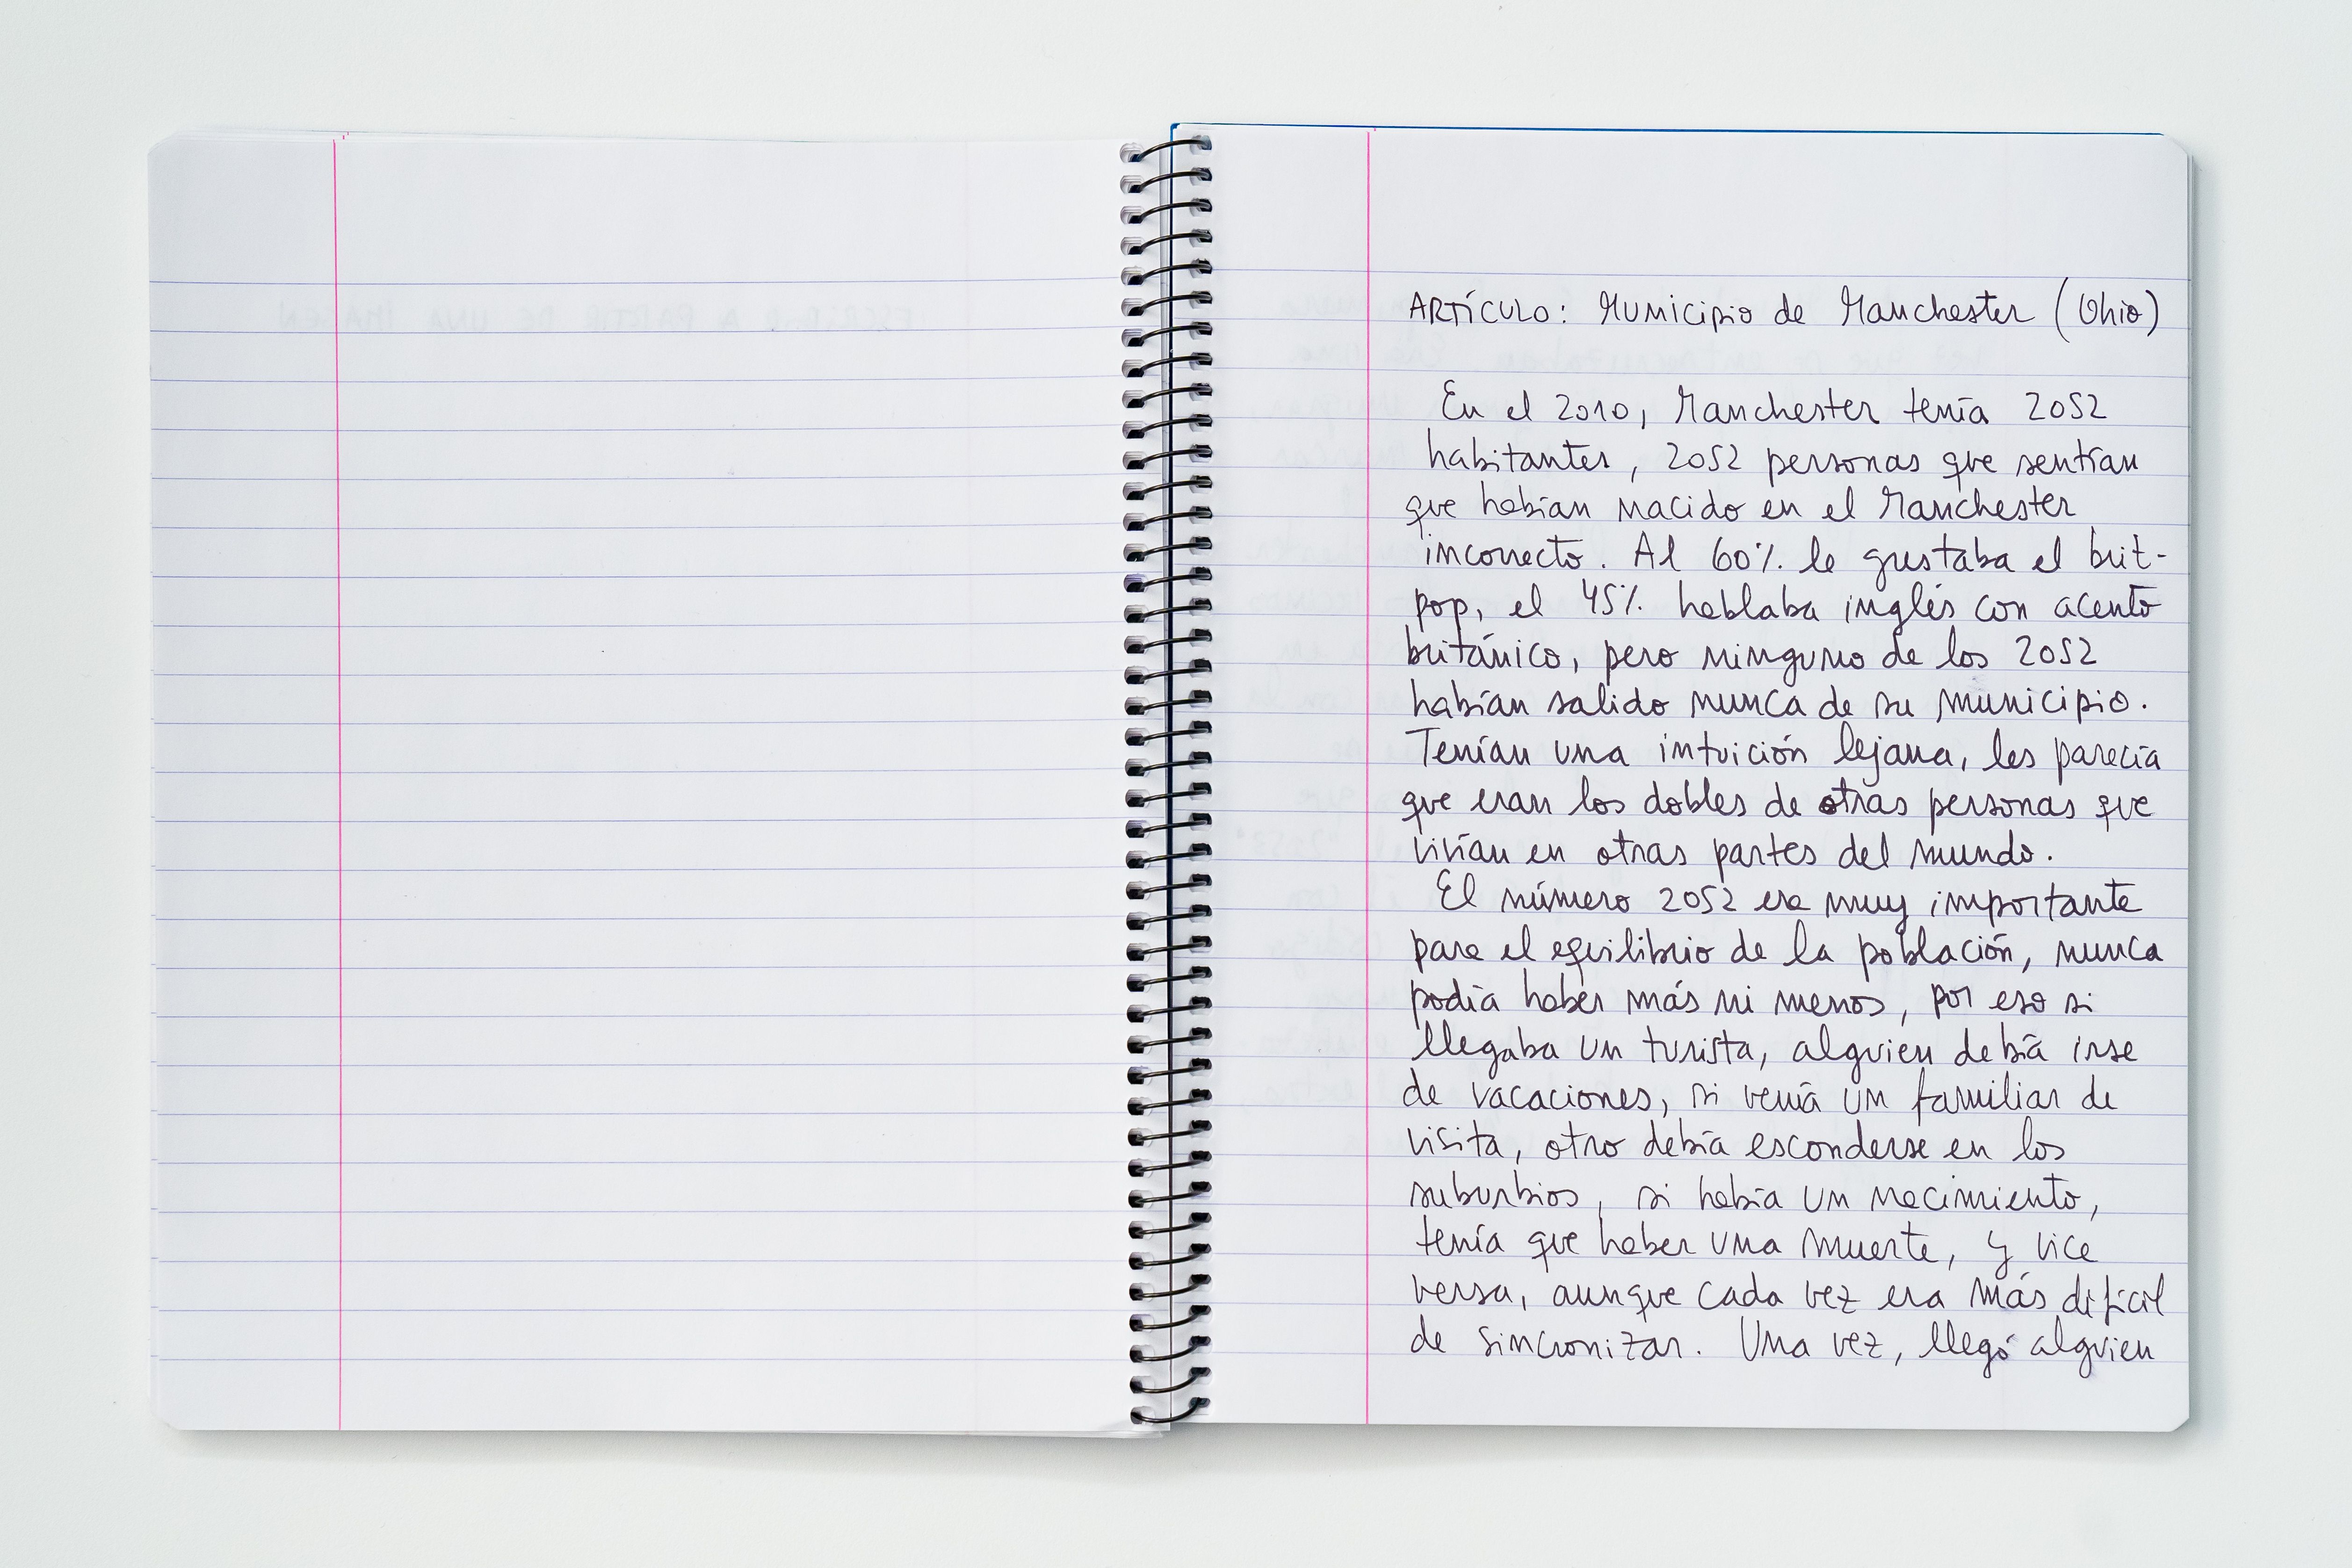 ESCRITO A PARTIR DE UNA IMAGEN
ARTÍCULO: Municipio de Manchester (Ohio)
En el 2010, Manchester tenía 2052
habitantes, 2052 personas que sentían
que habían nacido en el Manchester
incorrecto. Al 60% le gustaba el brit-
pop, el 45% hablaba inglés con acento
británico, pero ninguno de los 2052
habían salido nunca de su municipio.
Tenían una intuición lejana, les parecía
que eran los dobles de otras personas que
vivían en otras partes del mundo.
El número 2052 era muy importante
para el equilibrio de la población, nunca
podía haber más ni menos, por eso si
llegaba un turista, alguien debía irse
de vacaciones, si venía un familiar de
visita, otro debía esconderse en los
suburbios, si había un nacimiento,
tenía que haber una muerte, y vice
versa, aunque cada vez era más difícil
de sincronizar. Una vez, llegó alguien